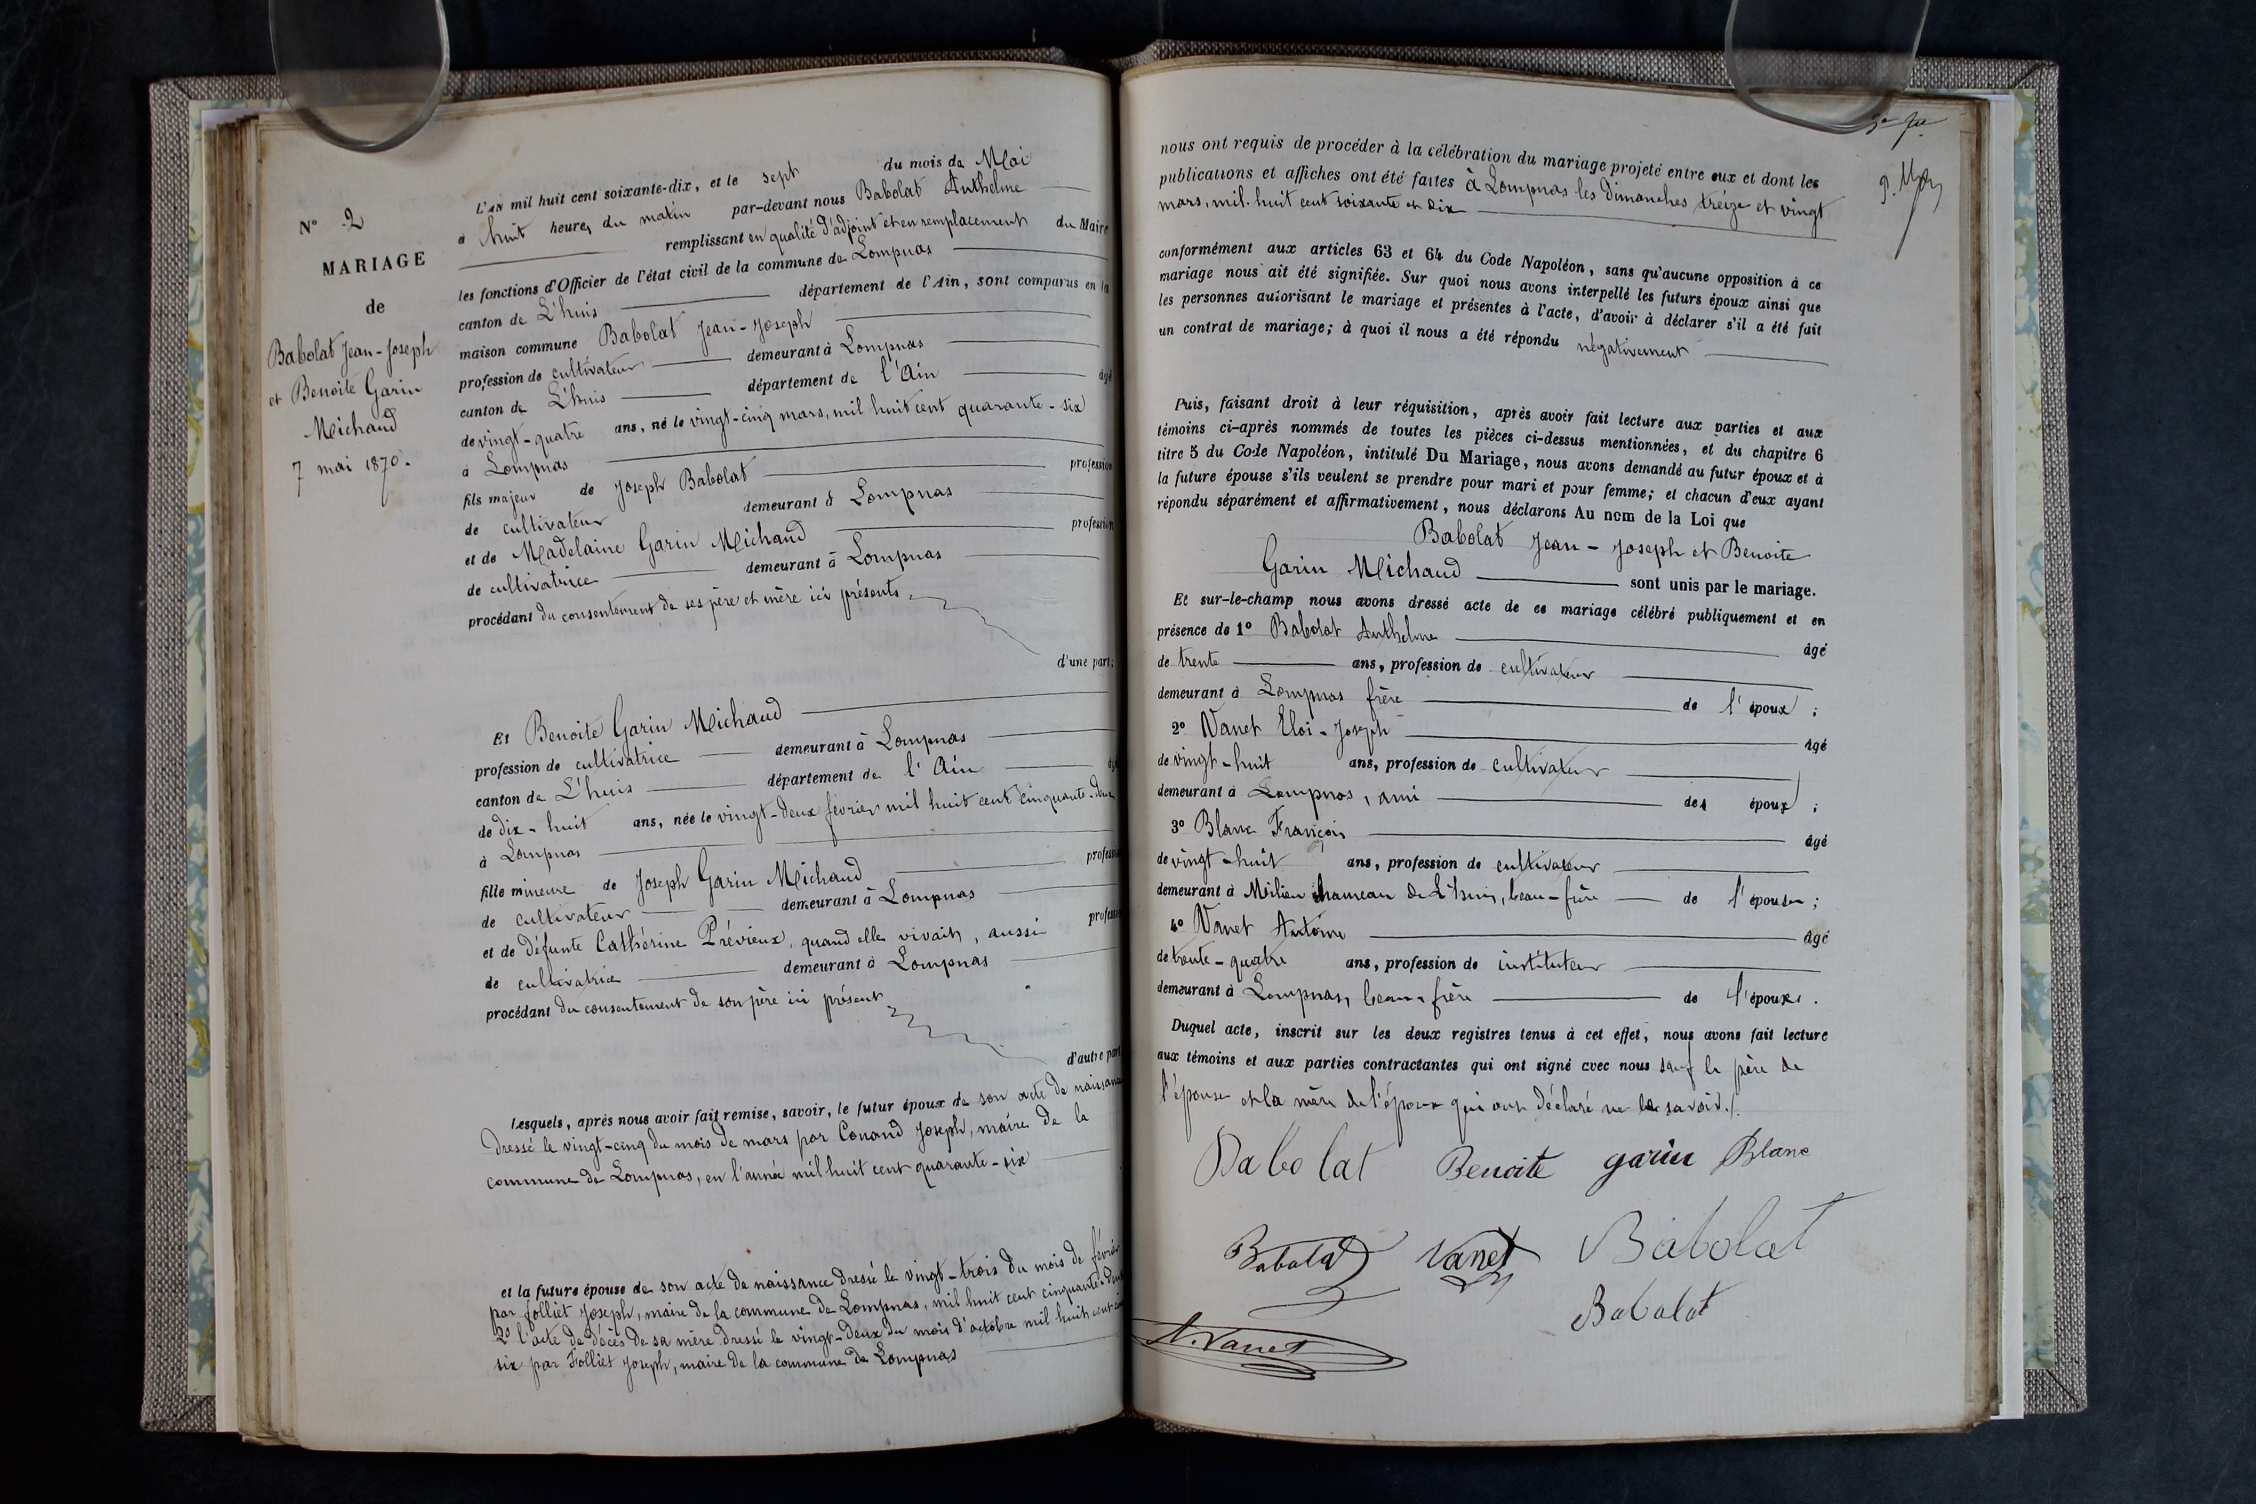 N° 2
MARIAGE
de
Babolat Jean-Joseph
et Benoite Garin
Michaud
7 mai 1870.
L'AN mil huit cent soixante-dix, et le sept du mois de Mai
à huit heures du matin par-devant nous Babolat Anthelme
remplissant en qualité d'adjoint et en remplacement du Maire
les fonctions d'Officier de l'état civil de la commune de Lompnas
canton de L'huis département de l'Ain, sont comparus en la
maison commune Babolat Jean-Joseph
profession de cultivateur demeurant à Lompnas
canton de L'huis département de l'Ain âgé
de vingt-quatre ans, né le vingt-cinq mars, mil huit cent quarante-six
à Lompnas
fils majeur de Joseph Babolat profession
de cultivateur demeurant à Lompnas
et de Madelaine Garin Michaud profession
de cultivatrice demeurant à Lompnas
procédant du consentement de ses père et mère ici présents
d'une part;
Et Benoite Garin Michaud
profession de cultivatrice demeurant à Lompnas
canton de L'huis département de l'Ain
de dix-huit ans, née le vingt-deux février mil huit cent cinquante-deux
à Lompnas
fille mineure de Joseph Garin Michaud profession
de cultivateur demeurant à Lompnas
et de défunte Cathérine Prévieux, quand elle vivait, aussi profession
de cultivatrice demeurant à Lompnas
procédant du consentement de son père ici présent
d'autre part
Lesquels, après nous avoir fait remise, savoir, le futur époux de son acte de naissance
dressé le vingt-cinq du mois de mars par Conand Joseph, maire de la
commune de Lompnas, en l'année mil huit cent quarante-six
et la future épouse de son acte de naissance dressé le vingt-trois du mois de février
par Folliet Joseph, maire de la commune de Lompnas, mil huit cent cinquante-deux
2° l'acte de décès de sa mère dressé le vingt-deux du mois d'octobre mil huit cent
six par Folliet Joseph, maire de la commune de Lompnas
nous ont requis de procéder à la célébration du mariage projeté entre eux et dont les
publications et affiches ont été faites à Lompnas les dimanches treize et vingt
mars, mil huit cent soixante et dix
conformément aux articles 63 et 64 du Code Napoléon, sans qu'aucune opposition à ce
mariage nous ait été signifiée. Sur quoi nous avons interpellé les futurs époux ainsi que
les personnes autorisant le mariage et présentes à l'acte, d'avoir à déclarer s'il a été fait
un contrat de mariage; à quoi il nous a été répondu négativement
Puis, faisant droit à leur réquisition, après avoir fait lecture aux parties et aux
témoins ci-après nommés de toutes les pièces ci-dessus mentionnées, et du chapitre 6
titre 5 du Code Napoléon, intitulé Du Mariage, nous avons demandé au futur époux et à
la future épouse s'ils veulent se prendre pour mari et pour femme; et chacun d'eux ayant
répondu séparément et affirmativement, nous déclarons Au nom de la Loi que
Babolat Jean-Joseph et Benoite
Garin Michaud sont unis par le mariage.
Et sur-le-champ nous avons dressé acte de ce mariage célébré publiquement et en
présence de 1° Babolat Anthelme âgé
de trente ans, profession de cultivateur
demeurant à Lompnas frère de l'époux;
2° Vanet Eloi-Joseph âgé
de vingt-huit ans, profession de cultivateur
demeurant à Lompnas, ami des époux;
3° Blanc François âgé
de vingt-huit ans, profession de cultivateur
demeurant à Milieu hameau de L'huis, beau-frère de l'épouse;
4° Vanet Antoine âgé
de trente-quatre ans, profession de instituteur
demeurant à Lompnas, beau-frère de l'époux.
Duquel acte, inscrit sur les deux registres tenus à cet effet, nous avons fait lecture
aux témoins et aux parties contractantes qui ont signé avec nous sauf le père de
l'épouse et la mère de l'époux qui ont déclaré ne le savoir./.
Babolat Benoite garin Blanc
Babolat Vanet Babolat
Babolat
A. Vanet